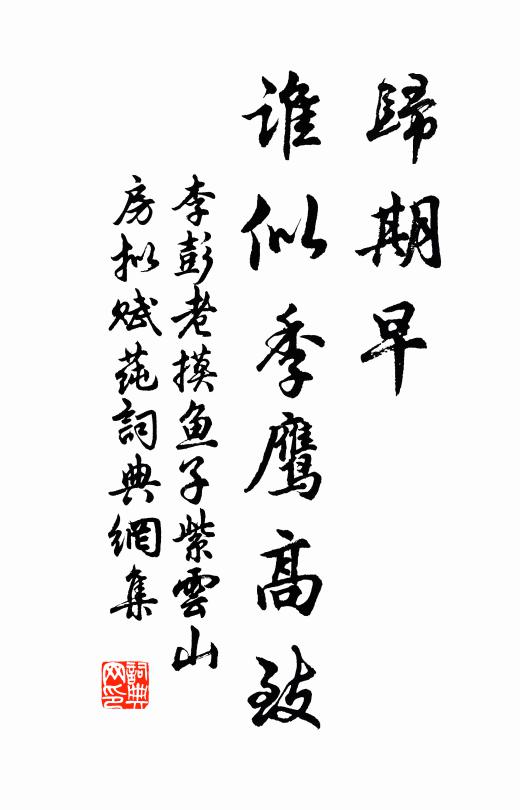 歸期早
誰似季鷹高致
李彭老摸鱼子紫雲山
房拟赋莼詞典網集
詞典網印